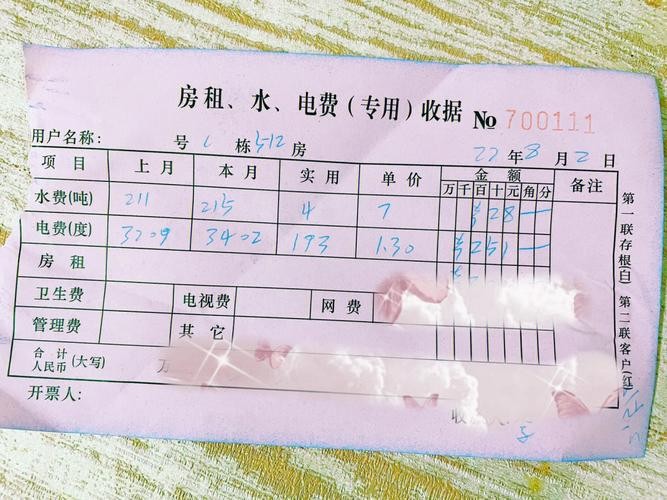 房租、水、电费(专用)收据 No 700111
用户名称: 号 1 栋 512 房 22年8月2日
项目 上月 本月 实用 单价 金额 备注
万千百十元角分
水费(吨) 211 215 4 7 28一
电费(度) 3209 3402 193 1.30 251一
房租
卫生费 电视费 网费
管理费 其它
合计人民币(大写) 万
开票人: 收
第一联存根(白) 第二联客户(红)